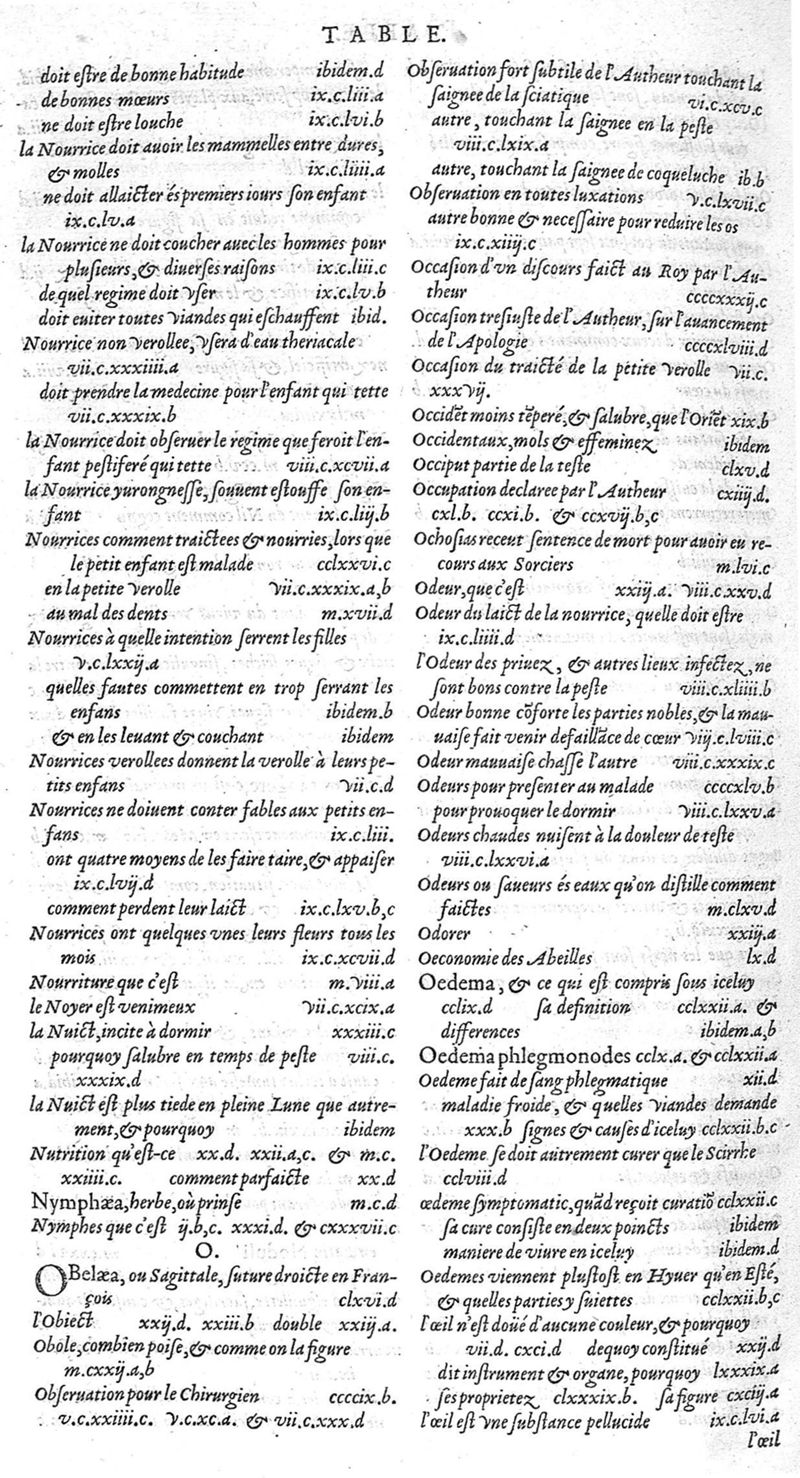 TABLE.
doit eſtre de bonne habitude ibidem.d
de bonnes mœurs ix.c.liii.a
ne doit eſtre louche ix.c.lvi.b
la Nourrice doit auoir les mammelles entre dures,
& molles ix.c.liiii.a
ne doit allaicter és premiers iours ſon enfant
ix.c.lv.a
la Nourrice ne doit coucher auec les hommes pour
pluſieurs, & diuerſes raiſons ix.c.liii.c
de quel regime doit vſer ix.c.lv.b
doit euiter toutes viandes qui eſchauffent ibid.
Nourrice non verollee, vſera d'eau theriacale
vii.c.xxxiiii.a
doit prendre la medecine pour l'enfant qui tette
vii.c.xxxix.b
la Nourrice doit obſeruer le regime que feroit l'en-
fant peſtiferé qui tette viii.c.xcvii.a
la Nourrice yurongneſſe, ſouuent eſtouffe ſon en-
fant ix.c.liij.b
Nourrices comment traictees & nourries, lors que
le petit enfant eſt malade cclxxvi.c
en la petite verolle vii.c.xxxix.a,b
au mal des dents m.xvii.d
Nourrices à quelle intention ſerrent les filles
v.c.lxxij.a
quelles fautes commettent en trop ſerrant les
enfans ibidem.b
& en les leuant & couchant ibidem
Nourrices verollees donnent la verolle à leurs pe-
tits enfans vii.c.d
Nourrices ne doiuent conter fables aux petits en-
fans ix.c.liii.
ont quatre moyens de les faire taire, & appaiſer
ix.c.lvij.d
comment perdent leur laict ix.c.lxv.b,c
Nourrices ont quelques vnes leurs fleurs tous les
mois ix.c.xcvii.d
Nourriture que c'eſt m.viii.a
le Noyer eſt venimeux vii.c.xcix.a
la Nuict, incite à dormir xxxiii.c
pourquoy ſalubre en temps de peſte viii.c.
xxxix.d
la Nuict eſt plus tiede en pleine Lune que autre-
ment, & pourquoy ibidem
Nutrition qu'eſt-ce xx.d. xxii.a,c. & m.c.
xxiiii.c. comment parfaicte xx.d
Nymphæa, herbe, où prinſe m.c.d
Nymphes que c'eſt ij.b,c. xxxi.d. & cxxxvii.c
O.
OBelæa, ou Sagittale, ſuture droicte en Fran-
çois clxvi.d
l'Obiect xxij.d. xxiii.b double xxiij.a.
Obole, combien poiſe, & comme on la figure
m.cxxij.a,b
Obſeruation pour le Chirurgien ccccix.b.
v.c.xxiiii.c. v.c.xc.a. & vii.c.xxx.d
Obſeruation fort ſubtile de l'Autheur touchant la
ſaignee de la ſciatique vi.c.xcv.c
autre, touchant la ſaignee en la peſte
viii.c.lxix.a
autre, touchant la ſaignee de coqueluche ib.b
Obſeruation en toutes luxations v.c.lxvii.c
autre bonne & neceſſaire pour reduire les os
ix.c.xiiij.c
Occaſion d'vn diſcours faict au Roy par l'Au-
theur ccccxxxij.c
Occaſion treſiuſte de l'Autheur, ſur l'auancement
de l'Apologie ccccxlviii.d
Occaſion du traicté de la petite verolle vii.c.
xxxvij.
Occidēt moins tēperé, & ſalubre, que l'Oriēt xix.b
Occidentaux, mols & effeminez ibidem
Occiput partie de la teſte clxv.d
Occupation declaree par l'Autheur cxiiij.d.
cxl.b. ccxi.b. & ccxvij.b,c
Ochoſias receut ſentence de mort pour auoir eu re-
cours aux Sorciers m.lvi.c
Odeur, que c'eſt xxiij.a. viii.c.xxv.d
Odeur du laict de la nourrice, quelle doit eſtre
ix.c.liiii.d
l'Odeur des priuez, & autres lieux infectez, ne
ſont bons contre la peſte viii.c.xliiii.b
Odeur bonne cōforte les parties nobles, & la mau-
uaiſe fait venir defaillāce de cœur viij.c.lviii.c
Odeur mauuaiſe chaſſe l'autre viii.c.xxxix.c
Odeurs pour preſenter au malade ccccxlv.b
pour prouoquer le dormir viii.c.lxxv.a
Odeurs chaudes nuiſent à la douleur de teſte
viii.c.lxxvi.a
Odeurs ou ſaueurs és eaux qu'on diſtille comment
faictes m.clxv.d
Odorer xxiij.a
Oeconomie des Abeilles lx.d
Oedema, & ce qui eſt compris ſous iceluy
cclix.d ſa definition cclxxii.a. &
differences ibidem.a,b
Oedema phlegmonodes cclx.a. & cclxxii.a
Oedeme fait de ſang phlegmatique xii.d
maladie froide, & quelles viandes demande
xxx.b ſignes & cauſes d'iceluy cclxxii.b.c
l'Oedeme ſe doit autrement curer que le Scirrhe
cclviii.d
œdeme ſymptomatic, quād reçoit curatiō cclxxii.c
ſa cure conſiſte en deux poincts ibidem
maniere de viure en iceluy ibidem.d
Oedemes viennent pluſtoſt en Hyuer qu'en Eſté,
& quelles parties y ſuiettes cclxxii.b,c
l'œil n'eſt doüé d'aucune couleur, & pourquoy
vii.d. cxci.d dequoy conſtitué xxij.d
dit inſtrument & organe, pourquoy lxxxix.a
ſes proprietez clxxxix.b. ſa figure cxciij.a
l'œil eſt vne ſubſtance pellucide ix.c.lvi.a
l'œil